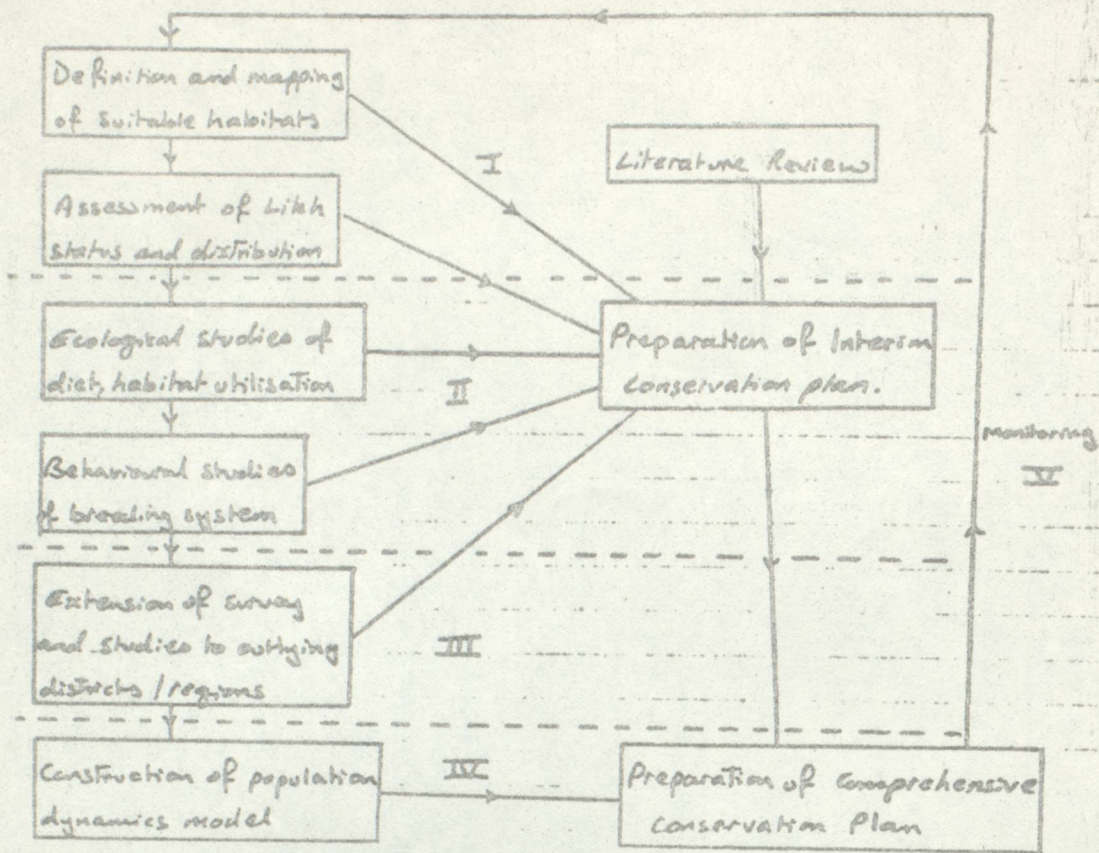 Definition and mapping
of suitable habitats
I
Literature Review
Assessment of Likh
status and distribution
Ecological studies of
diet, habitat utilisation
II
Preparation of Interim
conservation plan.
Behavioural studies
of breeding system
monitoring
V
Extension of survey
and studies to outlying
districts / regions
III
Construction of population
dynamics model
IV
Preparation of Comprehensive
Conservation Plan